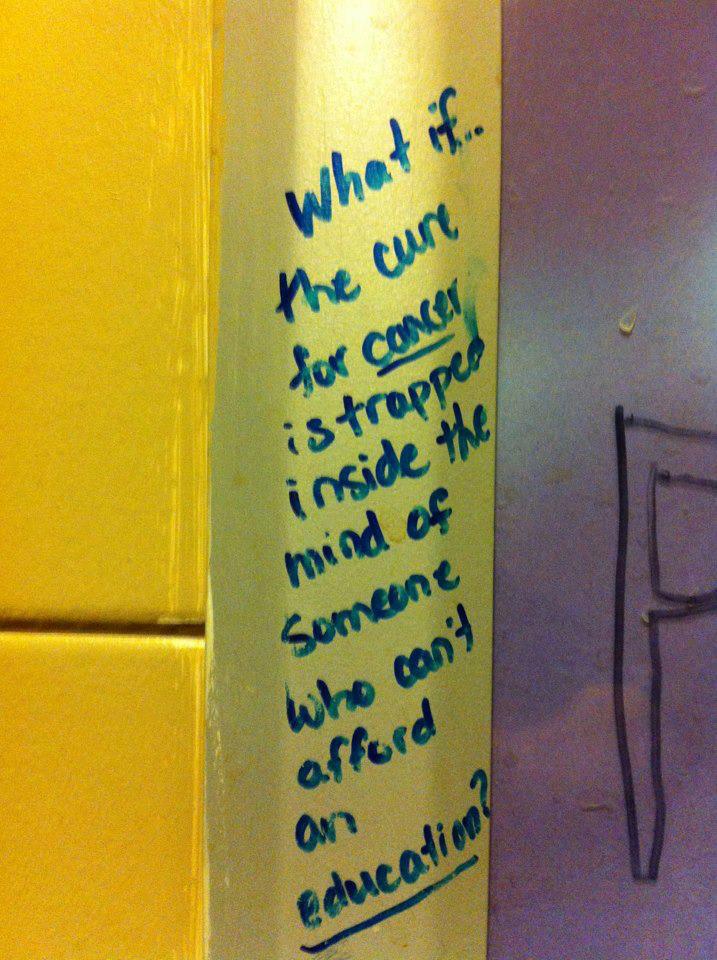 What if...
the cure
for cancer
is trapped
inside the
mind of
someone
who can't
afford
an
education?
P